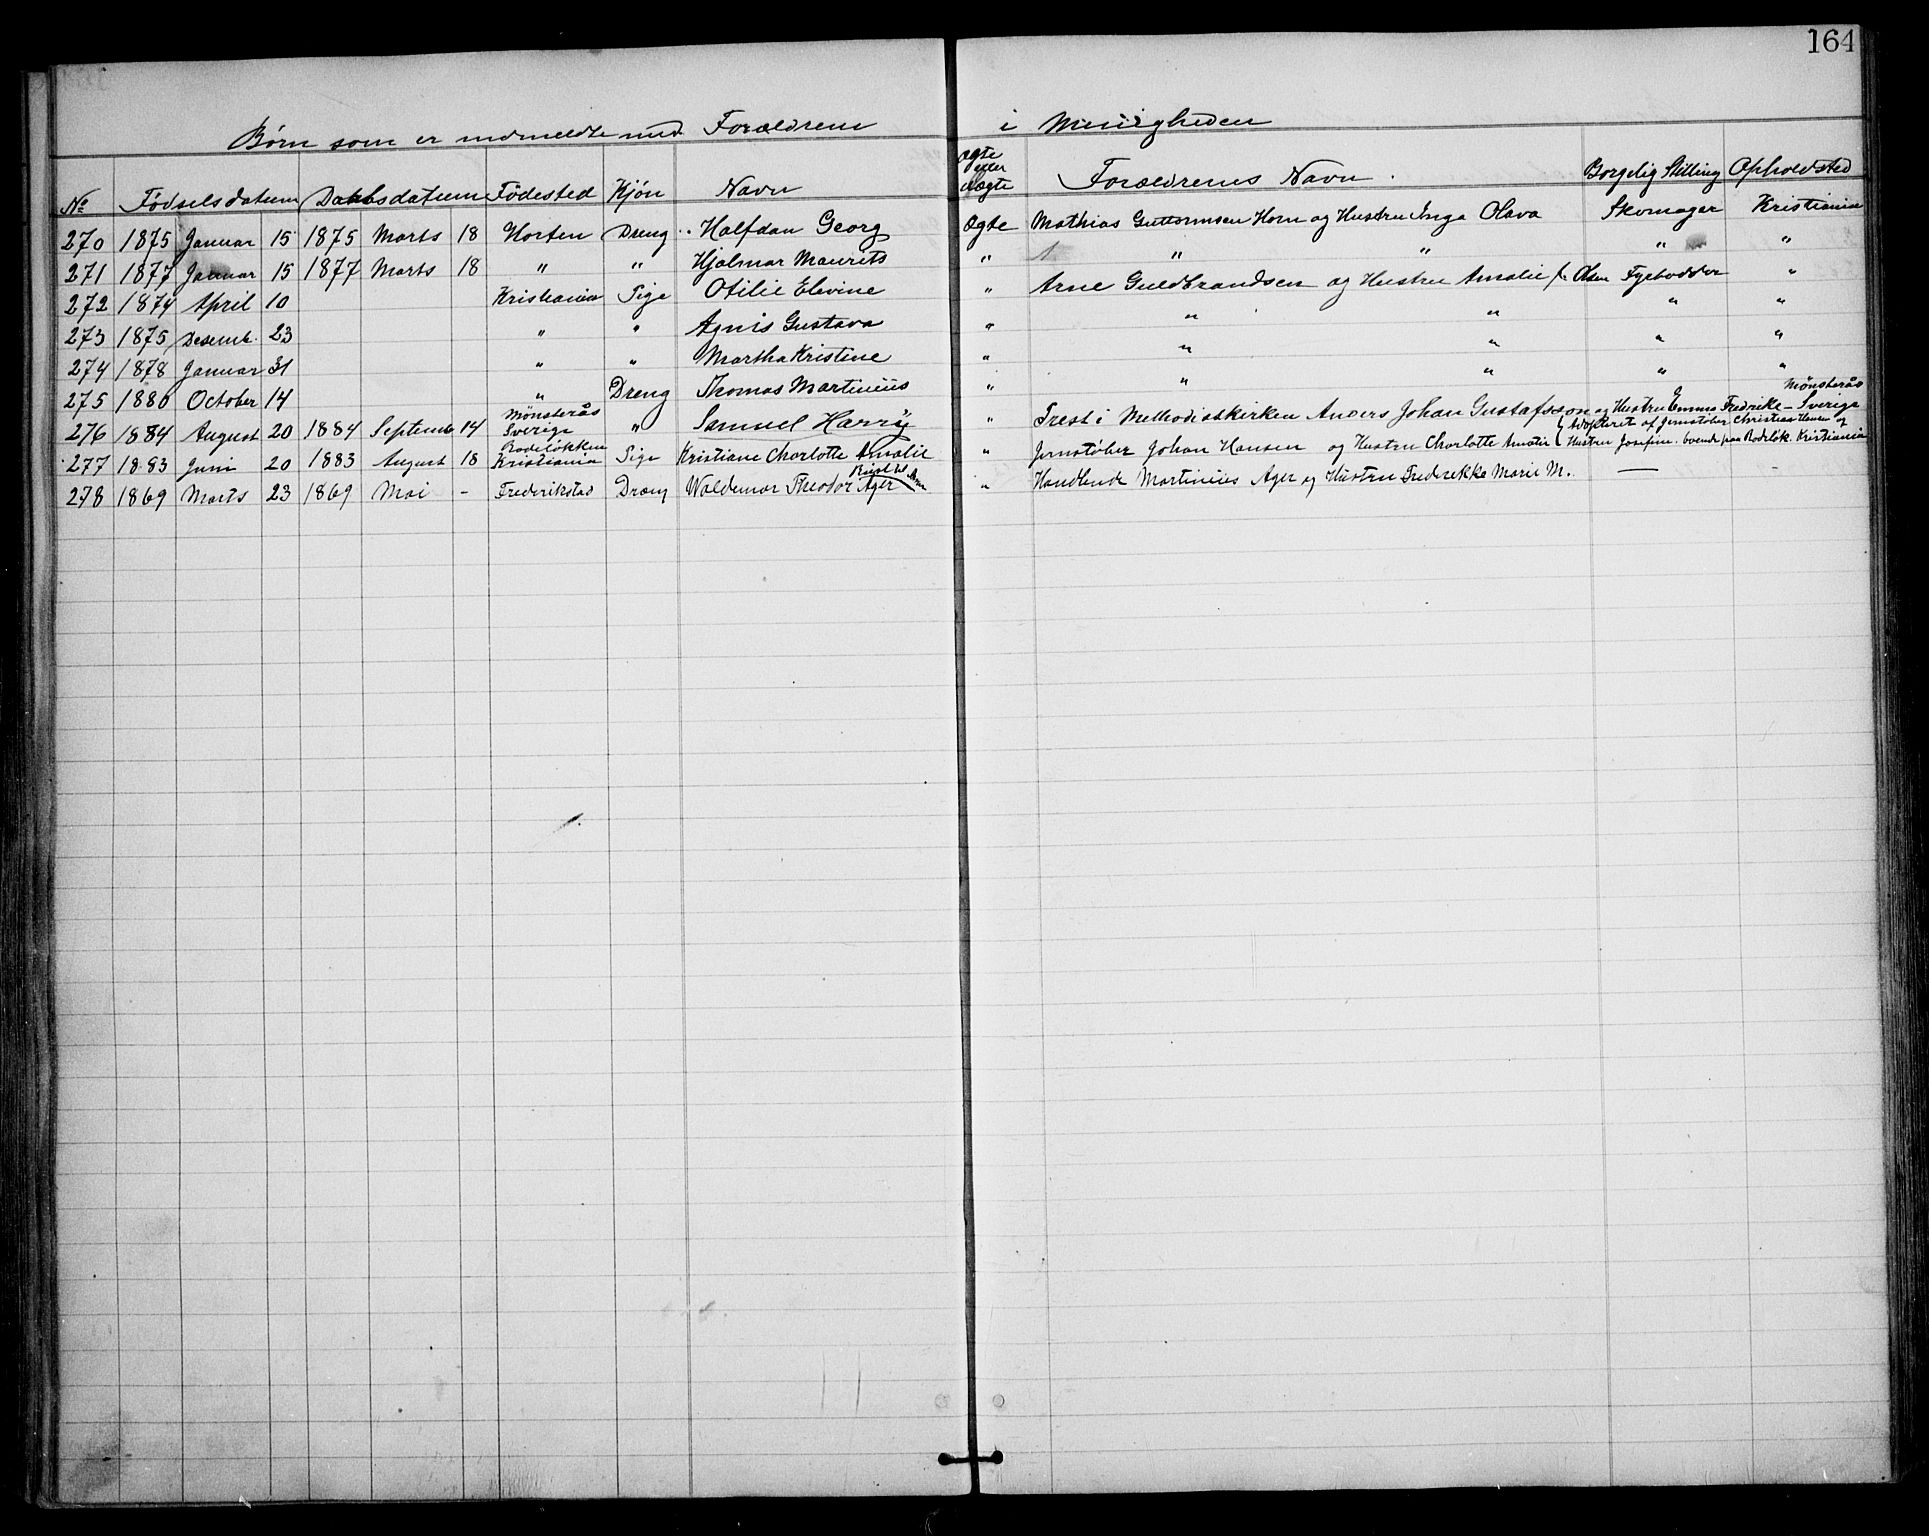 164
Børn som er indmeldte med Forældrene i Menigheden
No Fødselsdatum Daabsdatum Fødested Kjön Navn Ægte eller uægte Forældrenes Navn. Borgelig Stilling Opholdsted
270 1875 Januar 15 1875 Marts 18 Horten Dreng Halfdan Georg Ægte Mathias Guttormsen Horn og Hustru Inga Olava Skomager Kristiania
271 1877 Januar 15 1877 Marts 18 " " Hjalmar Maurits " " " " "
272 1874 April 10 Kristiania Pige Otilie Elevine " Arne Guldbrandsen og Hustru Amalie f. Olsen Fyrbødder "
273 1875 Desemb. 23 " " Agnis Gustava " " " " "
274 1878 Januar 31 " " Martha Kristine " " " " "
275 1880 October 14 " Dreng Thomas Martinius " " " " "
276 1884 August 20 1884 Septemb 14 Mönsterås Sverige " Samuel Harry " Prest i Methodistkirken Anders Johan Gustafsson og Hustru Emma Fredrike – Mönsterås Sverige
277 1883 Juni 20 1883 August 18 Rodeløkken Kristiania Pige Kristiane Charlotte Amalie " Jernstøber Johan Hansen og Hustru Charlotte Amalie { Adopteret af Jernstøber Christian Hansen og Hustru Josefine. boende paa Rodeløk. Kristiania
278 1869 Marts 23 1869 Mai - Frederikstad Dreng Waldemar Theodor Ager " Handlende Martinius Ager og Hustru Fredrekke Marie M. —